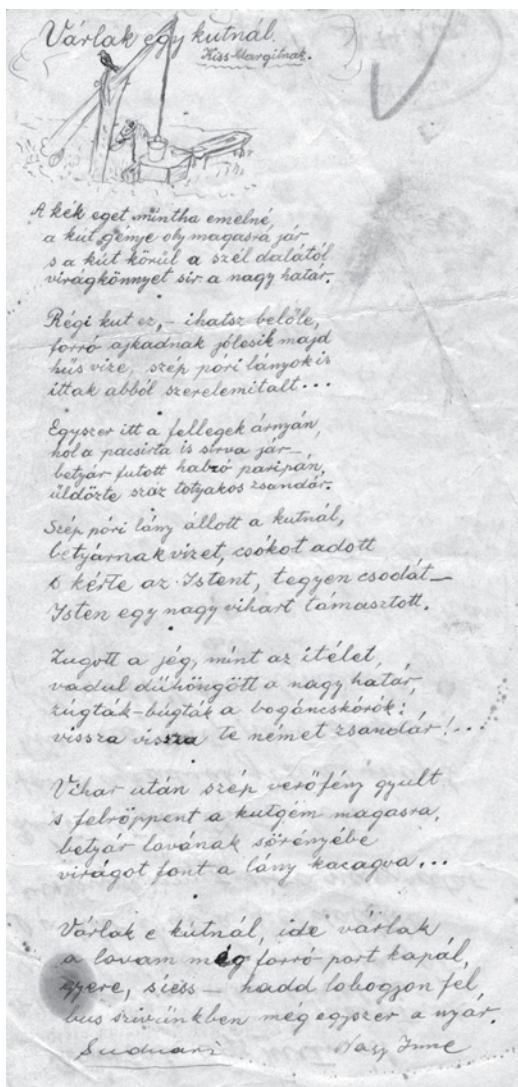 Várlak egy kutnál.
Kiss Margitnak.
A kék eget mintha emelné
a kút gémje oly magasra jár
s a kút körül a szél dalától
virágkönnyet sir a nagy határ.
Régi kut ez, – ihatsz belőle,
forró ajkadnak jólesik majd
hüs vize, szép póri lányok is
ittak abból szerelemitalt...
Egyszer itt a fellegek árnyán,
hol a pacsirta is sirva jár –
betyár futott habzó paripán,
üldözte száz totyakos zsandár.
Szép póri lány állott a kutnál,
betyárnak vizet, csókot adott
s kérte az Istent, tegyen csodát –
Isten egy nagy vihart támasztott.
Zugott a jég, mint az itélet,
vadul dühöngött a nagy határ,
zúgták-búgták a bogáncskórók:
vissza vissza te német zsandár!...
Vihar után szép verőfény gyult
s felröppent a kutgém magasra,
betyár lovának sörényébe
virágot font a lány kacagva...
Várlak e kútnál, ide várlak
a lovam még forró port kapál,
gyere, siess – hadd lobogjon fel
bus szivünkben mégegyszer a nyár.
Nagy Imre